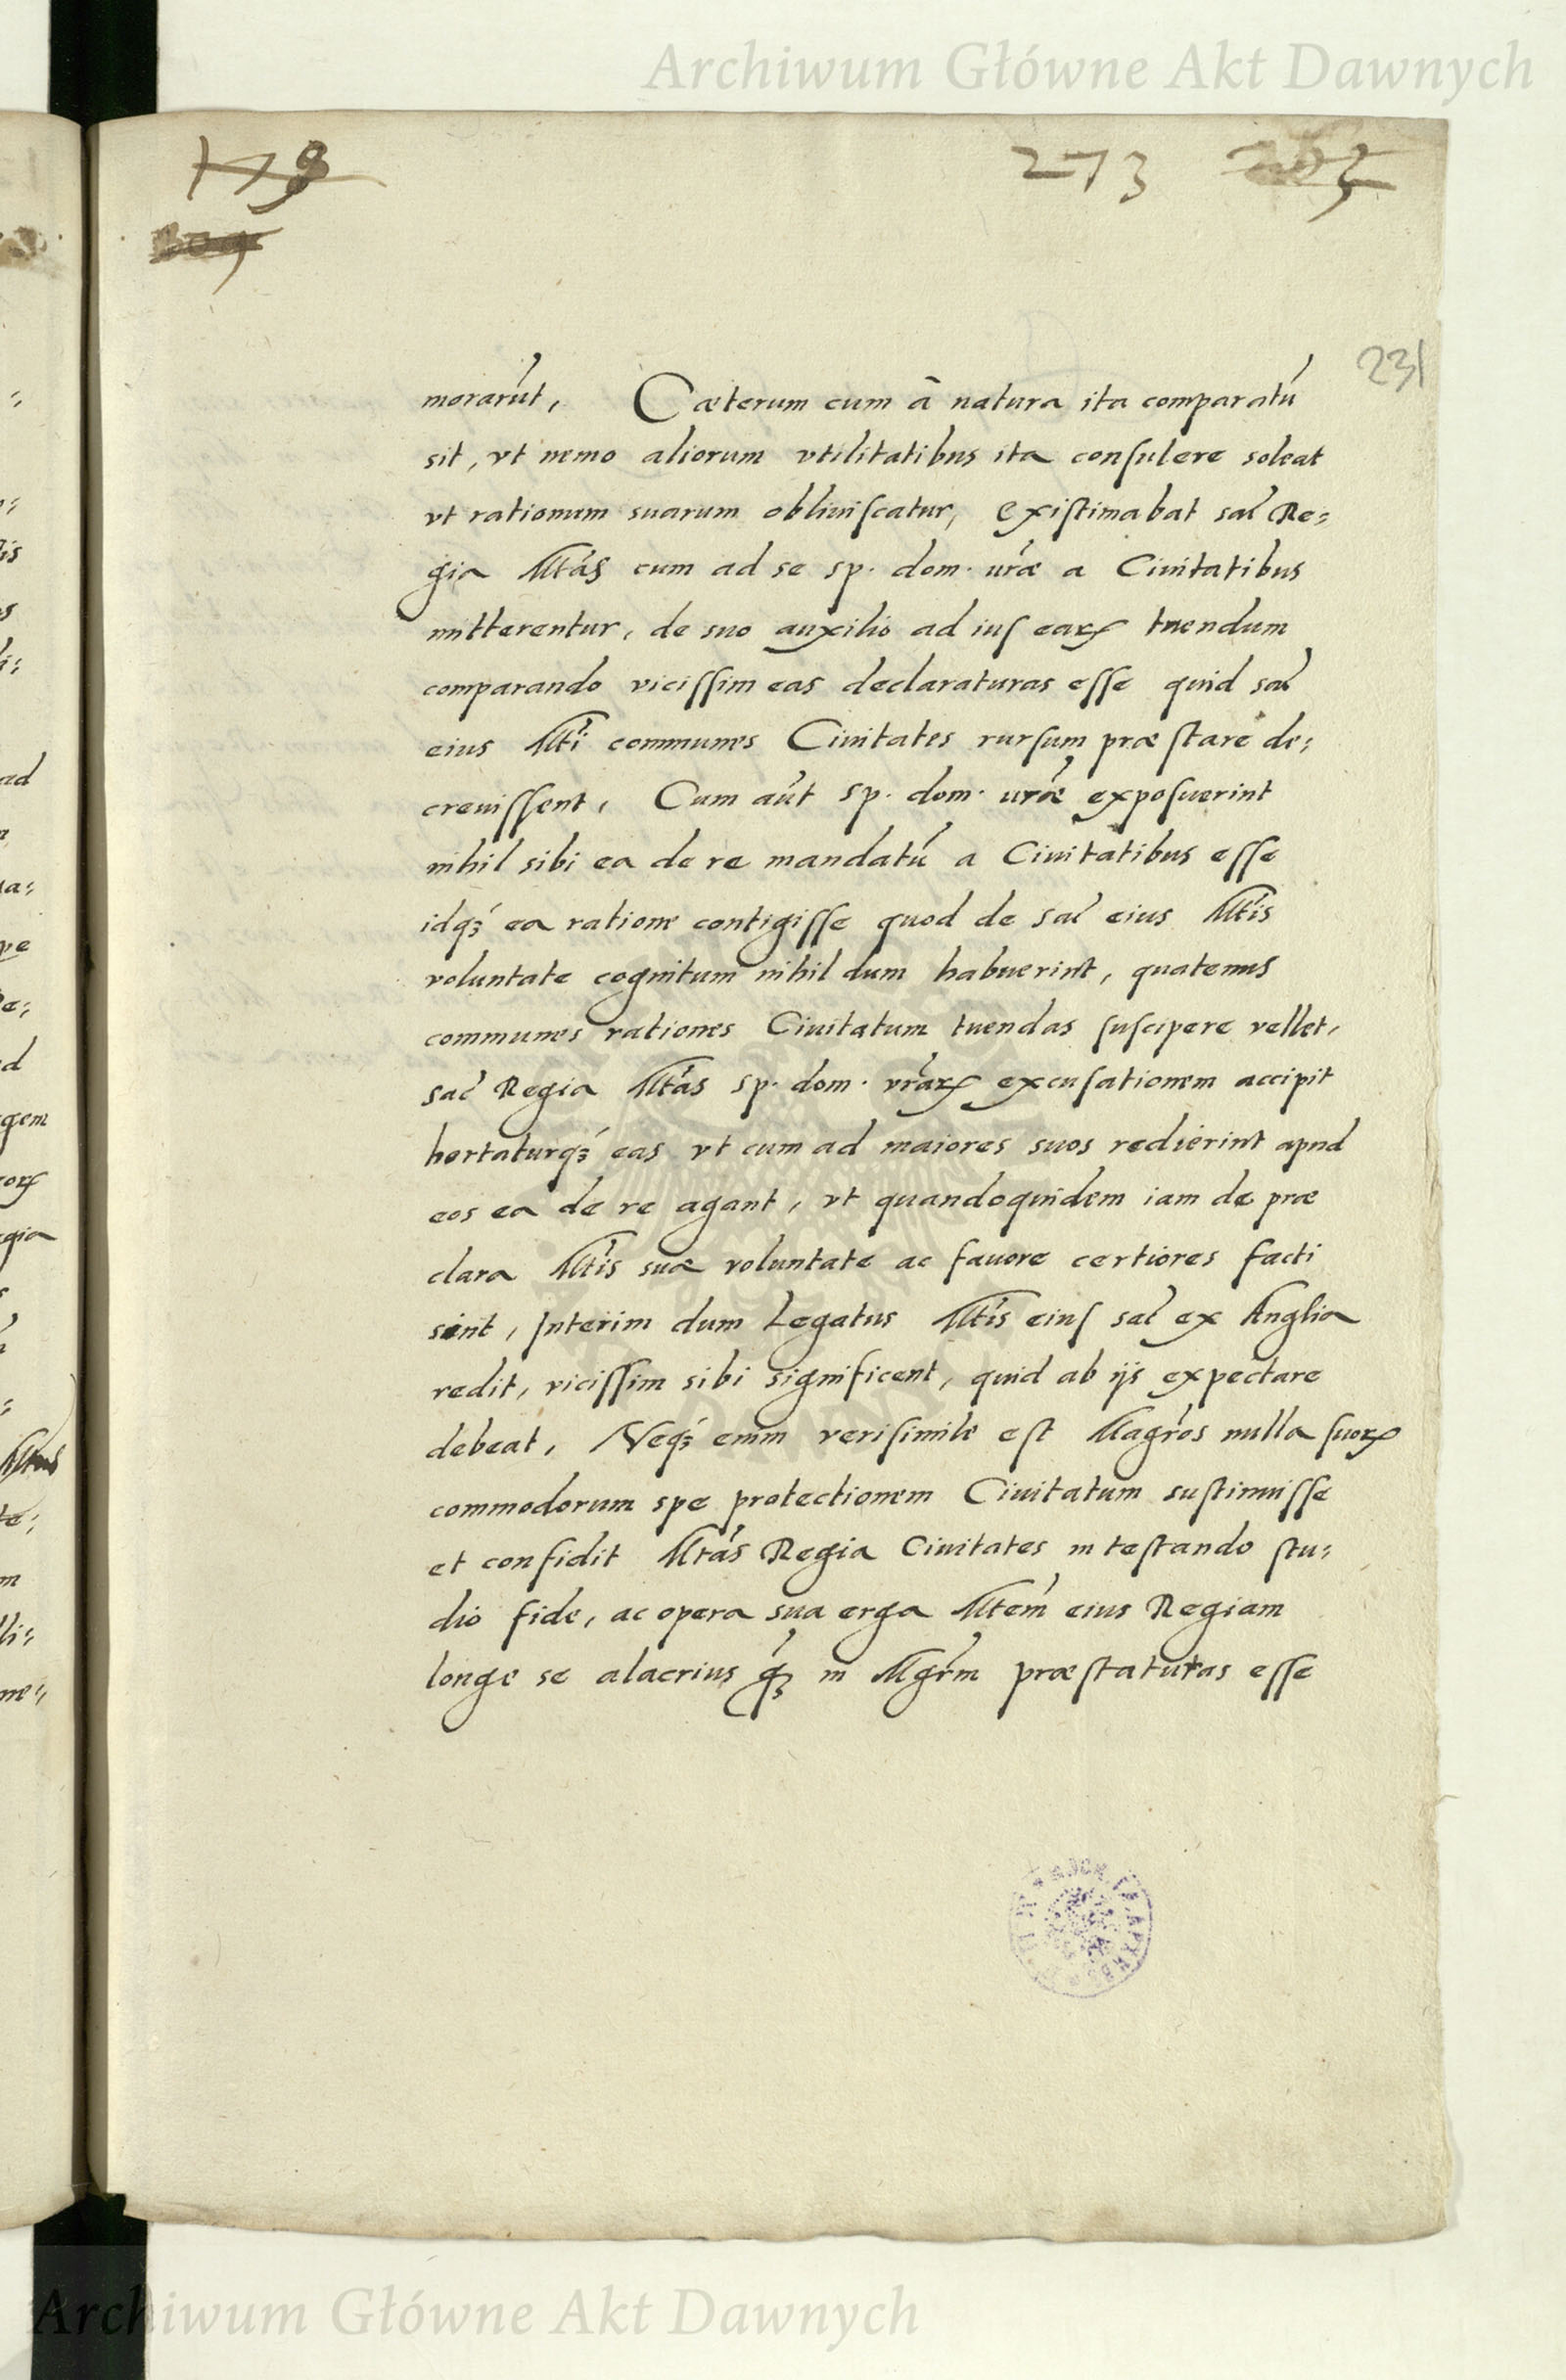 Archiwum Główne Akt Dawnych
273
231
morarút, Cæterum cum â natura ita comparatú
sit, vt nemo aliorum vtilitatibus ita consulere soleat
vt rationum suarum obliuiscatur, existimabat sac Re=
gia Mtás cum ad se sp. dom. vrǽ a Ciuitatibus
mitterentur, de suo auxilio ad ius earꝝ tuendum
comparando vicissim eas declaraturas esse quid sac
eius Mti communes Ciuitates rursum præstare de=
creuissent, Cum aút sp. dom. vrǽ exposuerint
nihil sibi ea de re mandatú a Ciuitatibus esse
idqꝫ ea ratione contigisse quod de sac eius Mtis
voluntate cognitum nihil dum habuerint, quatenus
communes rationes Ciuitatum tuendas suscipere vellet,
sac Regia Mtás sp. dom. vrárꝝ excusationem accipit
hortaturqꝫ eas vt cum ad maiores suos redierint apud
eos ea de re agant, vt quandoquidem iam de præ
clara Mtis suæ voluntate ac fauore certiores facti
sint, Interim dum Legatus Mtis eius sac ex Anglia
redit, vicissim sibi significent, quid ab ijs expectare
debeat, Neqꝫ enim verisimile est Magrós nulla suorꝝ
commodorum spe protectionem Ciuitatum sustinuisse
et confidit Mtás Regia Ciuitates in testando stu=
dio fide, ac opera sua erga Mtem eius Regiam
longe se alacrius qꝫ in Mgrm præstaturas esse
Archiwum Główne Akt Dawnych